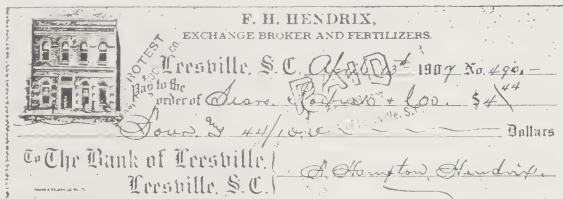 F. H. HENDRIX,
EXCHANGE BROKER AND FERTILIZERS.
Leesville, S. C. April 1907 No. 490.-
Pay to the
order of Sears, Roebuck & Co. $4 44
Four & 44/100 Dollars
To The Bank of Leesville,
Leesville, S.C. F. Hampton Hendrix.
PROTEST
PAID